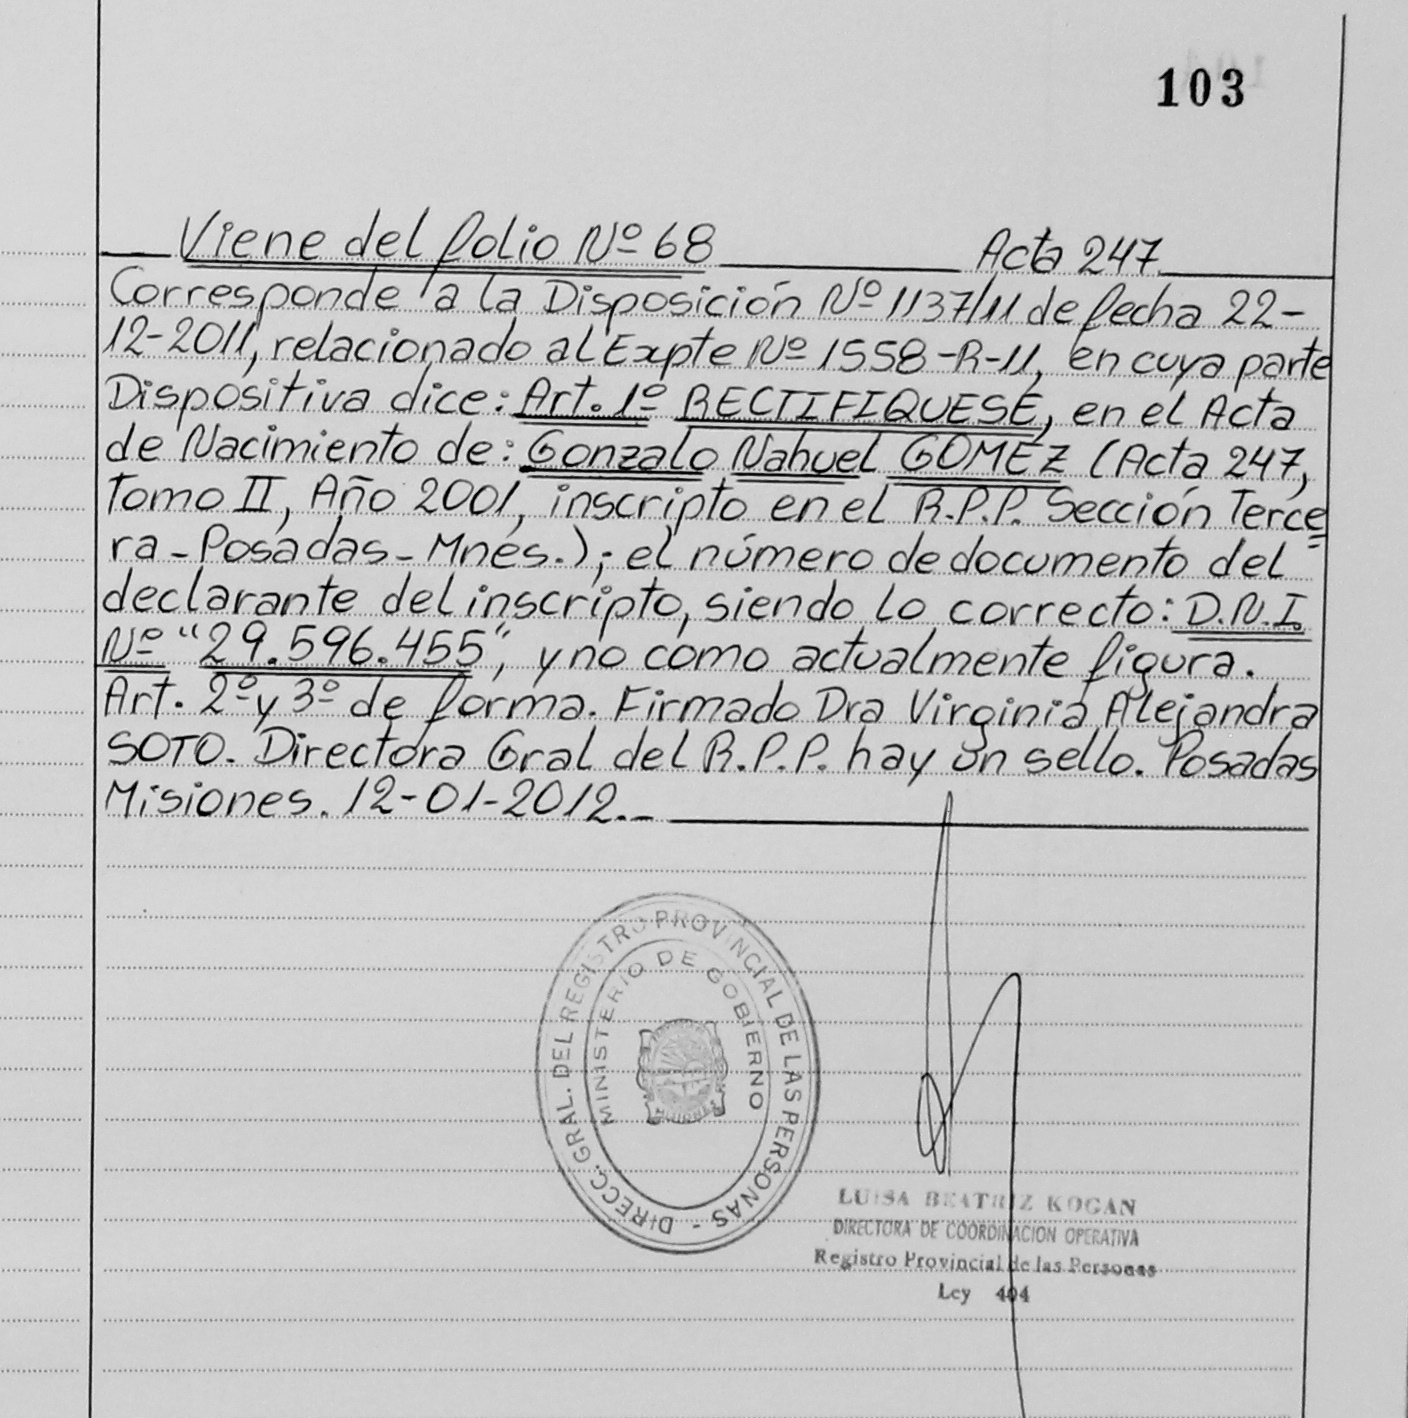 103
Viene del folio Nº 68 Acta 247
Corresponde a la Disposición Nº 1137/11 de fecha 22-
12-2011, relacionado al Expte Nº 1558-R-11, en cuya parte
Dispositiva dice: Art. 1º RECTIFIQUESE, en el Acta
de Nacimiento de: Gonzalo Nahuel GOMEZ (Acta 247,
Tomo II, Año 2001, inscripto en el R.P.P. Sección Terce
ra - Posadas - Mnes.); el número de documento del
declarante del inscripto, siendo lo correcto: D.N.I.
Nº "29.596.455", y no como actualmente figura.
Art. 2º y 3º de forma. Firmado Dra Virginia Alejandra
SOTO. Directora Gral del R.P.P. hay un sello. Posadas
Misiones. 12-01-2012.-
DIRECC. GRAL. DEL REGISTRO PROVINCIAL DE LAS PERSONAS -
MINISTERIO DE GOBIERNO
LUISA BEATRIZ KOGAN
DIRECTORA DE COORDINACION OPERATIVA
Registro Provincial de las Personas
Ley 404